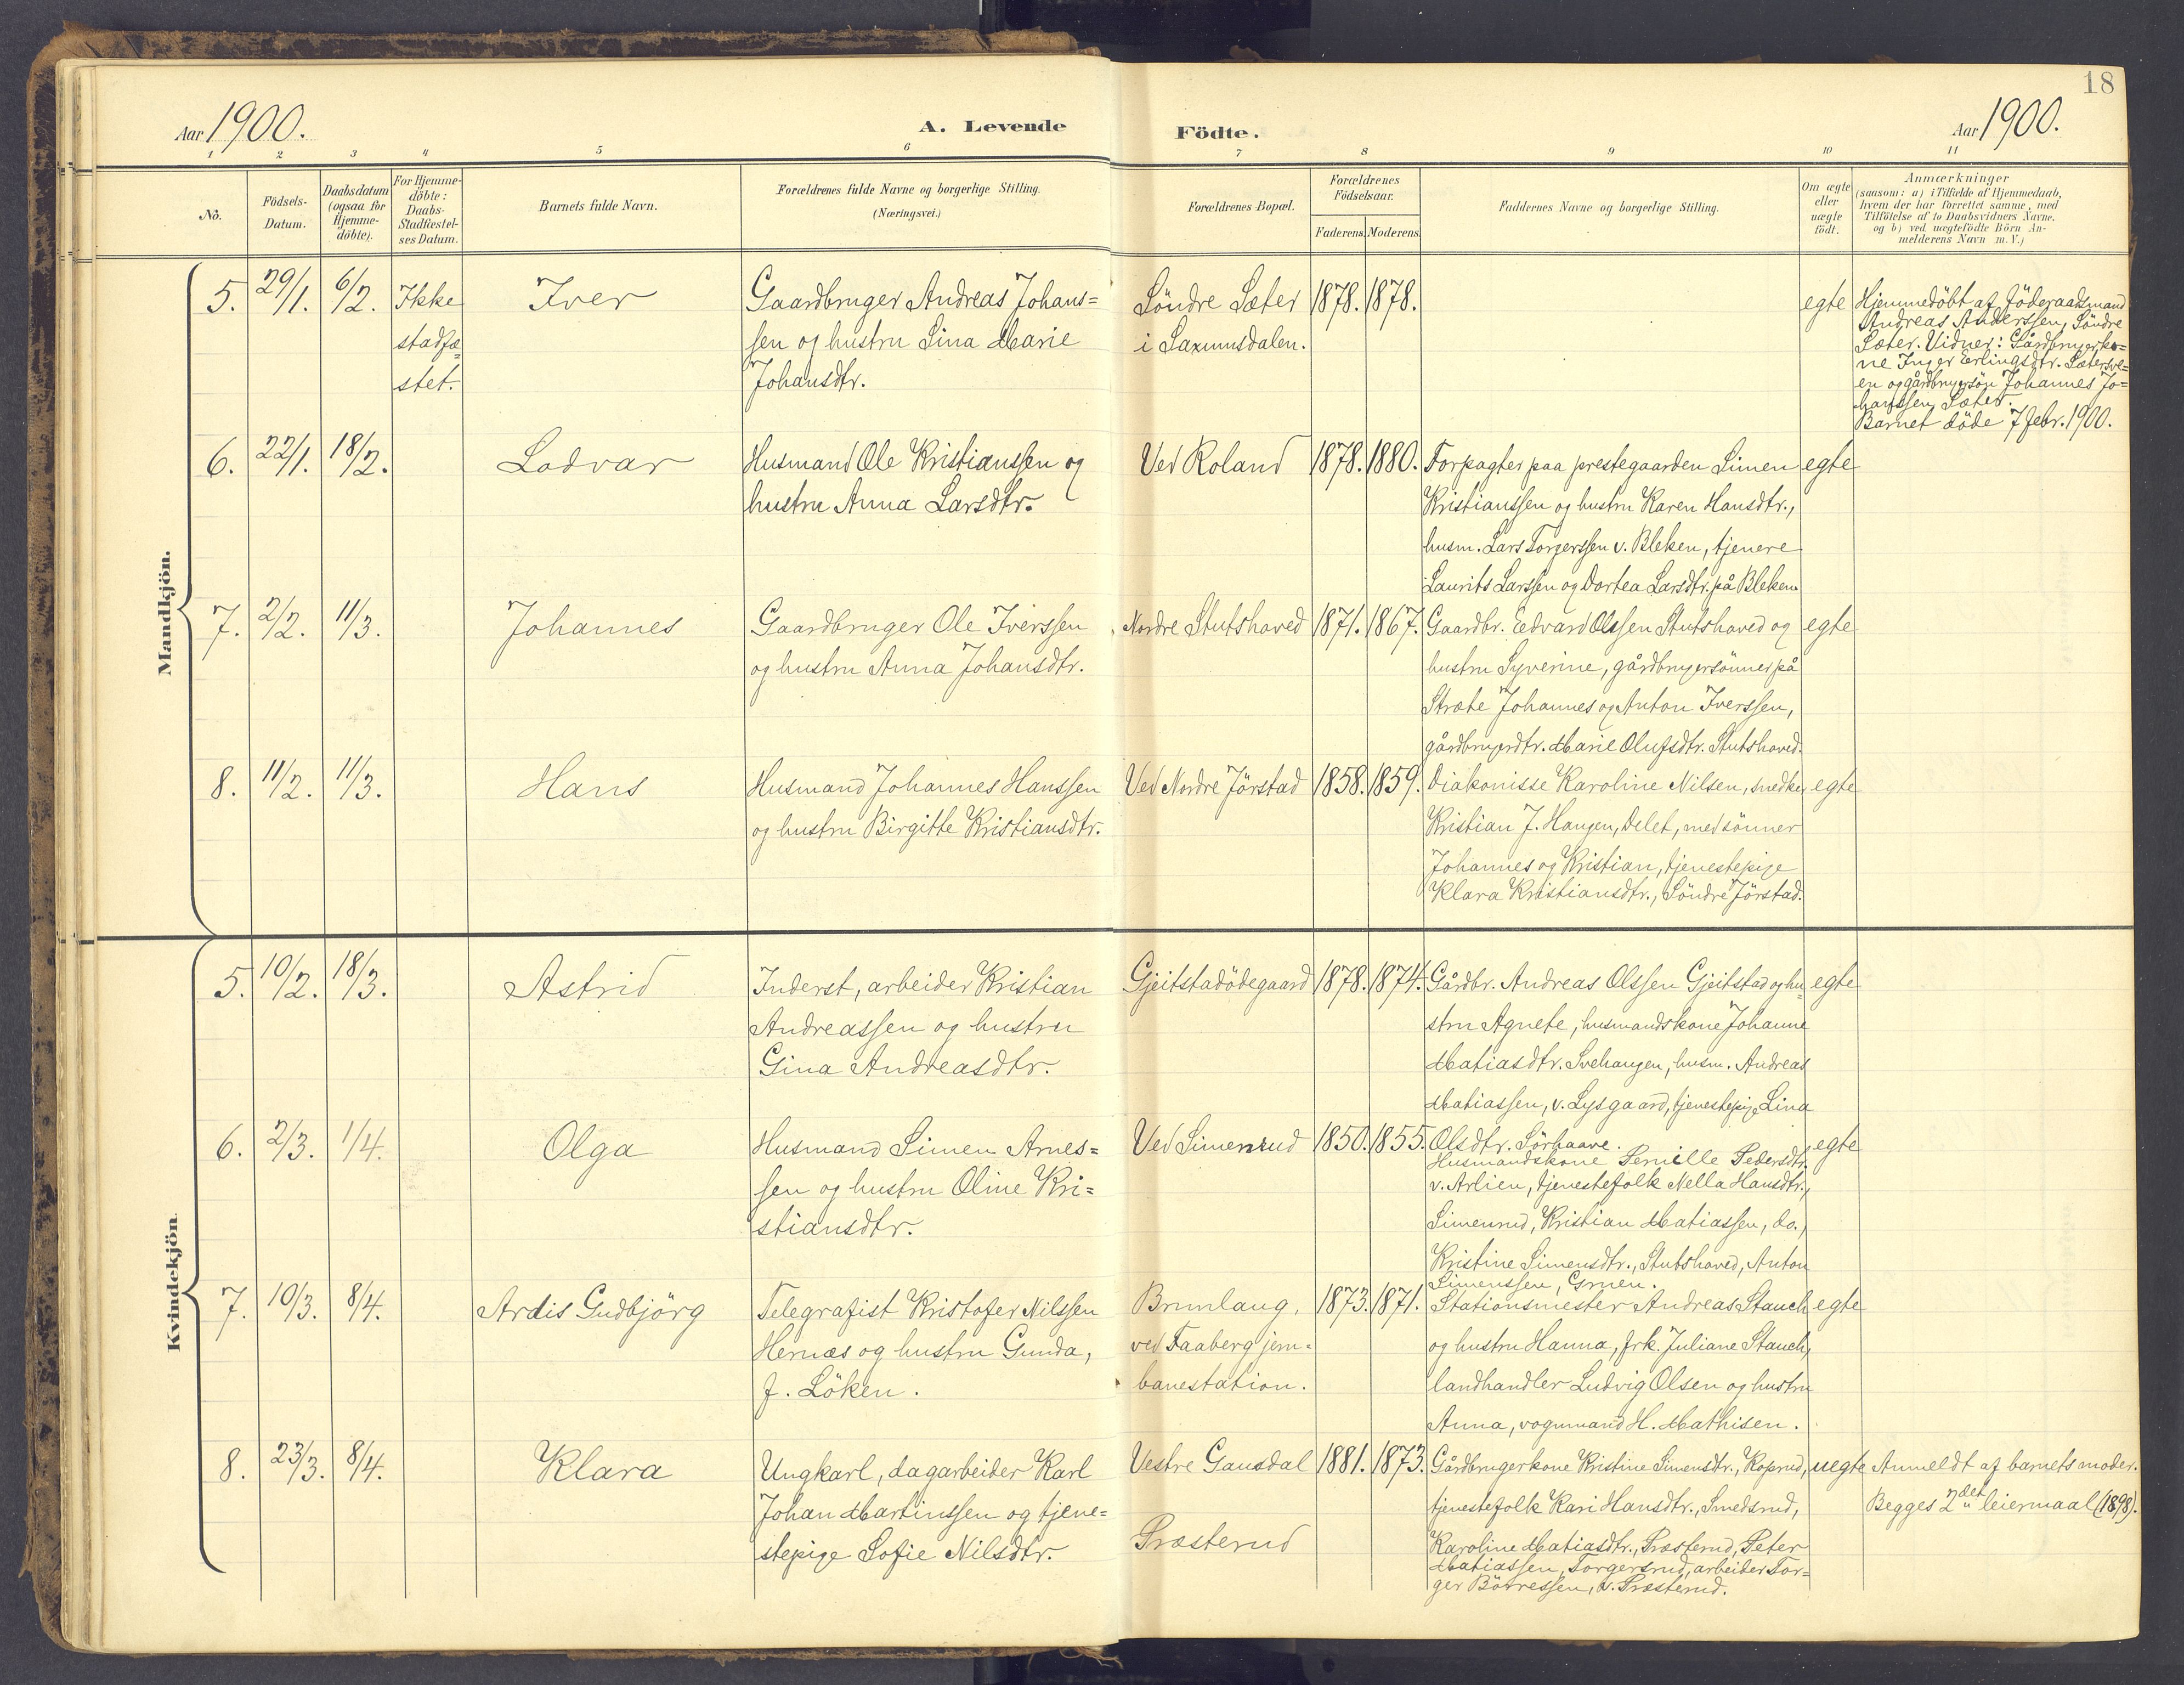 18
Aar 1900.
A. Levende Födte.
Aar 1900.
1 2 3 4 5 6 7 8 9 10 11
No.
Födsels-
Datum.
Daabsdatum
(ogsaa for
Hjemme-
döbte).
For Hjemme-
döbte:
Daabs-
Stadfæstel-
ses Datum.
Barnets fulde Navn.
Forældrenes fulde Navne og borgerlige Stilling.
(Næringsvei.)
Forældrenes Bopæl.
Forældrenes
Födselsaar.
Faderens. Moderens.
Faddernes Navne og borgerlige Stilling.
Om ægte
eller
uægte
födt.
Anmærkninger
(saasom: a) i Tilfælde af Hjemmedaab,
hvem der har forrettet samme, med
Tilföielse af to Daabsvidners Navne.
og b) ved uægtefödte Börn An-
melderens Navn m. V.)
Mandkjön.
5. 29/1. 6/2. Ikke
stadfæ=
stet.
Iver
Gaardbruger Andreas Johans=
sen og hustru Lina Marie
Johansdtr.
Söndre Sæter
i Saxumsdalen.
1878. 1878.
egte
Hjemmedöbt af föderaadsmand
Andreas Anderssen, Söndre
Sæter. Vidner: Gårdbrugerko=
ne Inger Erlingsdtr. Sætersve=
en og gårdbrugersön Johannes Jo=
hanssen Sæter.
Barnet döde 7 febr. 1900.
6. 22/1. 18/2.
Lodvar
Husmand Ole Kristianssen og
hustru Anna Larsdtr.
Ved Roland
1878. 1880.
Forpagter paa prestegaarden Simen
Kristianssen og hustru Karen Hansdtr.,
husm. Lars Torgerssen v. Bleken, tjenere
Laurits Larssen og Dortea Larsdtr. på Bleken
egte
7. 2/2. 11/3.
Johannes
Gaardbruger Ole Iverssen
og hustru Anna Johansdtr.
Nordre Stutshoved
1871. 1867.
Gaardbr. Edvard Olssen Stutshoved og
hustru Syverine, gårdbrugersönner på
Stræte Johannes og Anton Iverssen,
gårdbrugerdtr. Marie Olufsdtr. Stutshoved.
egte
8. 11/2. 11/3.
Hans
Husmand Johannes Hanssen
og hustru Birgitte Kristiansdtr.
Ved Nordre Jörstad
1858. 1859.
Diakonisse Karoline Nilsen, snedker
Kristian J. Haugen, Delet, med sönner
Johannes og Kristian, tjenestepige
Klara Kristiansdtr., Söndre Jörstad.
egte
Kvindekjön.
5. 10/2. 18/3.
Astrid
Inderst, arbeider Kristian
Andreassen og hustru
Gina Andreasdtr.
Gjeitstadödegaard
1878. 1874.
Gårdbr. Andreas Olssen Gjeitstad og hu=
stru Agnete, husmandskone Johanne
Matiasdtr. Svehaugen, husm. Andreas
Matiassen, v. Lysgaard, tjenestepige Lina
Olsdtr. Sörhaave.
egte
6. 2/3. 1/4.
Olga
Husmand Simen Arnes=
sen og hustru Oline Kri=
stiansdtr.
Ved Simenrud
1850. 1855.
Husmandskone Pernille Pedersdtr.
v. Arlien, tjenestefolk Nella Hansdtr.,
Simenrud, Kristian Matiassen, do.,
Kristine Simensdtr., Stutshoved, Anton
Simenssen, Gruen.
egte
7. 10/3. 8/4.
Ardis Gudbjörg
Telegrafist Kristofer Nilssen
Hernæs og hustru Gunda,
f. Löken.
Brunlaug,
ved Faaberg jern=
banestation.
1873. 1871.
Stationsmester Andreas Stauch
og hustru Hanna, frk. Juliane Stauch,
landhandler Ludvig Olsen og hustru
Anna, vognmand H. Mathisen.
egte
8. 23/3. 8/4.
Klara
Ungkarl, dagarbeider Karl
Johan Martinssen og tjene=
stepige Sofie Nilsdtr.
Vestre Gausdal
Præsterud
1881. 1873.
Gårdbrugerkone Kristine Simensdtr., Koprud,
tjenestefolk Kari Hansdtr., Smedsrud,
Karoline Matiasdtr., Præsterud, Peter
Matiassen, Torgersrud, arbeider Tor=
ger Börressen, v. Præsterud.
uegte
Anmeldt af barnets moder.
Begges 2det leiermaal (1898).